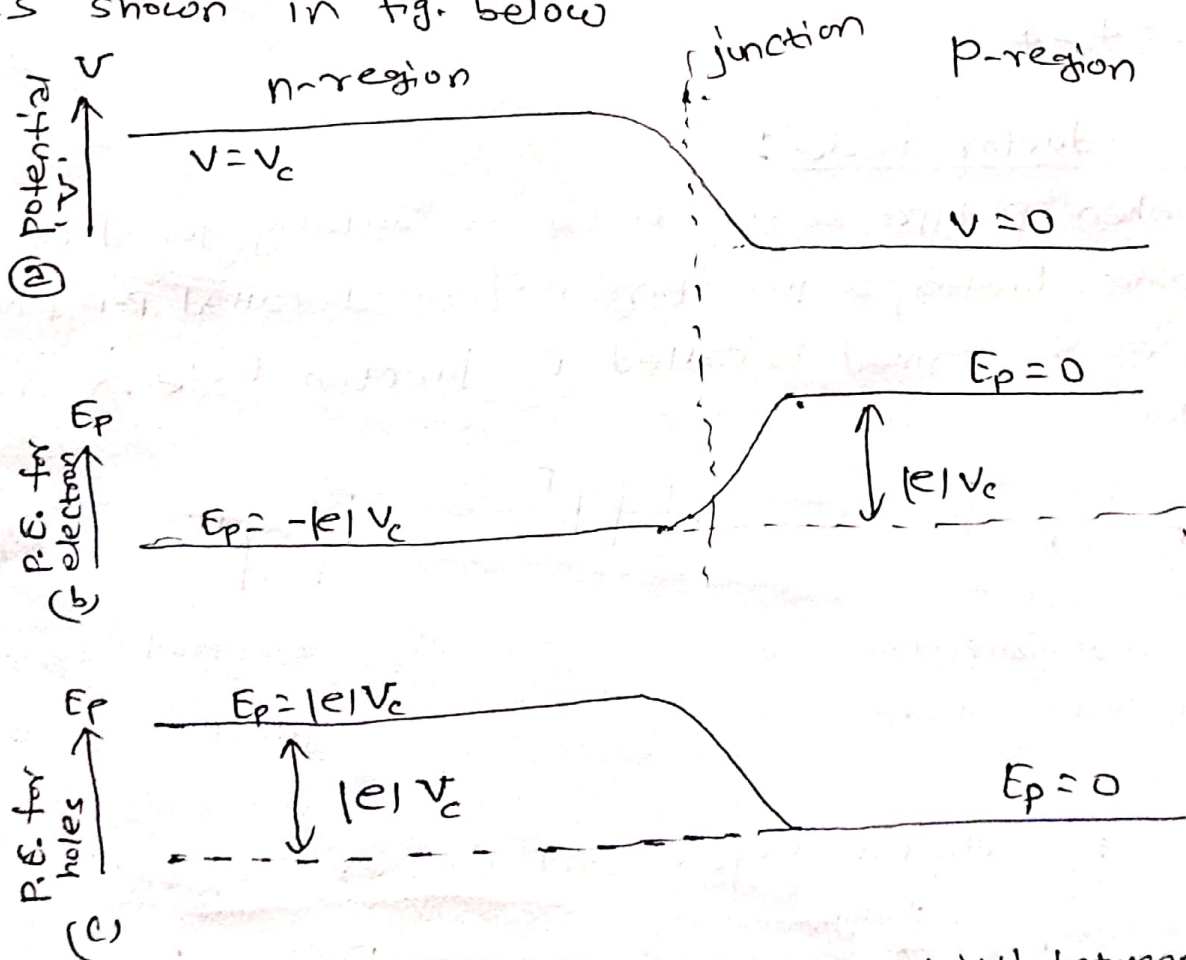 s shown in fig. below
n-region
junction
p-region
V
potential 'V'
V = Vc
V = 0
(a)
Ep
P.E. for electron
Ep = -|e| Vc
Ep = 0
|e| Vc
(b)
Ep
P.E. for holes
Ep = |e| Vc
|e| Vc
Ep = 0
(c)